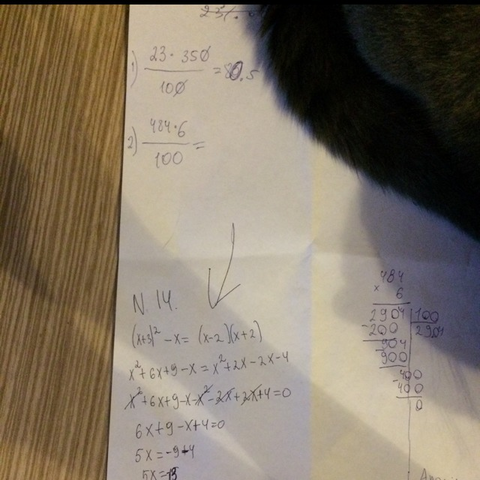 1) 23 · 350 / 100 = 80.5
2) 484 · 6 / 100 =
N. 14.
(x+3)² - x = (x-2)(x+2)
x² + 6x + 9 - x = x² + 2x - 2x - 4
x² + 6x + 9 - x - x² - 2x + 2x + 4 = 0
6x + 9 - x + 4 = 0
5x = -9-4
5x = -13
484
× 6
2904 | 100
-200 | 29,04
904
900
-400
400
0